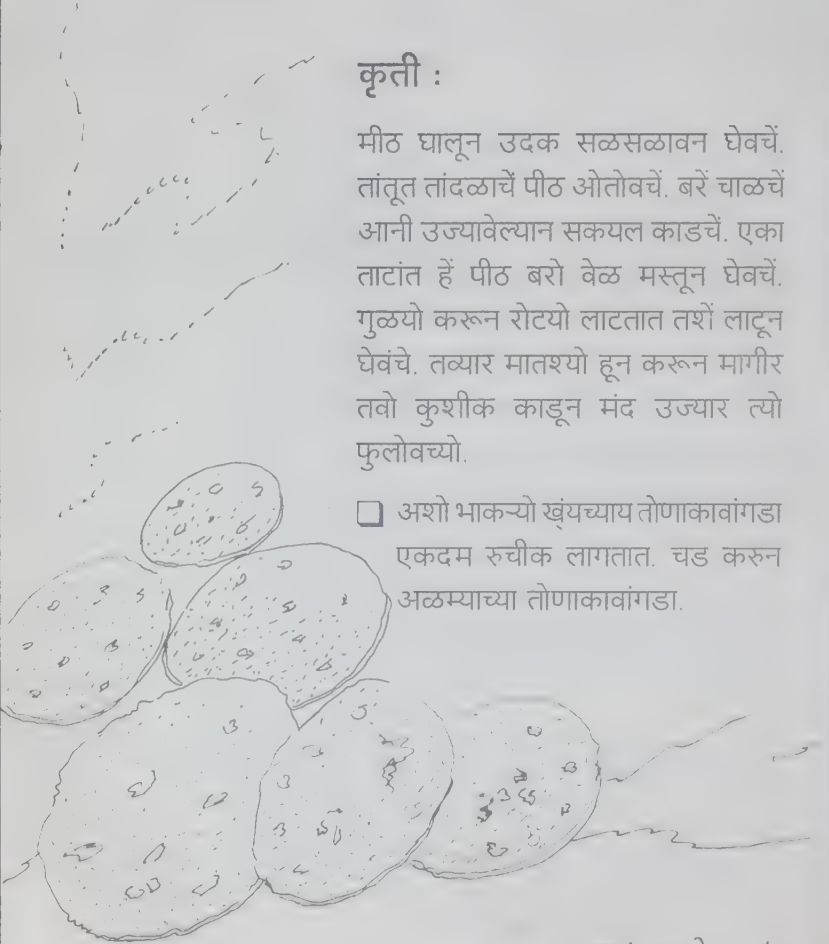 कृती :
मीठ घालून उदक सळसळावन घेवचें.
तांतूत तांदळाचें पीठ ओतोवचें. बरें चाळचें
आनी उज्यावेल्यान सकयल काडचें. एका
ताटांत हें पीठ बरो वेळ मस्तून घेवचें.
गुळयो करून रोटयो लाटतात तशें लाटून
घेवंचे. तव्यार मातश्यो हून करून मागीर
तवो कुशीक काडून मंद उज्यार त्यो
फुलोवच्यो.
अशो भाकऱ्यो खंयच्याय तोणाकावांगडा
एकदम रुचीक लागतात. चड करुन
अळम्याच्या तोणाकावांगडा.